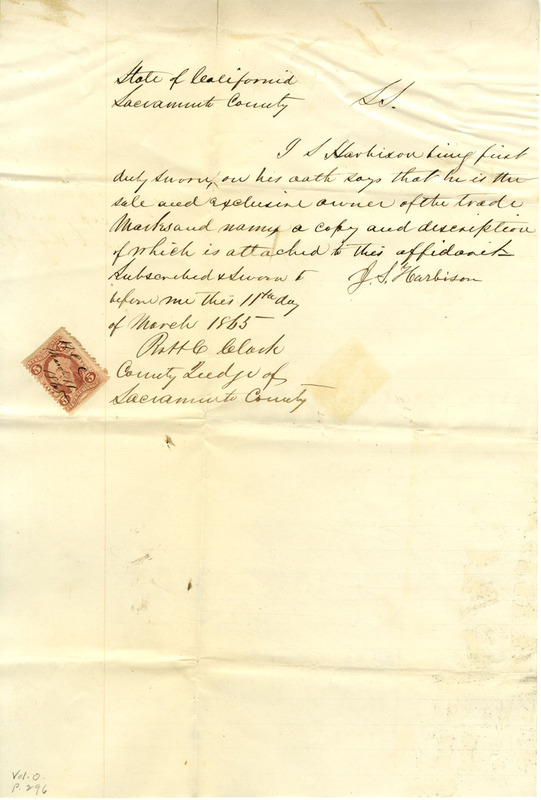 State of California
Sacramento County SS.
J S Harbison being first
duly sworn, on his oath says that he is the
sole and exclusive owner of the trade
Marks and names a copy and description
of which is attached to this affidavit
Subscribed & Sworn to J. S. Harbison
before me this 11th day
of March 1865
Robt C Clark
County Judge of
Sacramento County
5 5
Vol. O.
P. 296